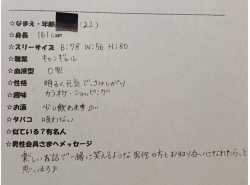 ☆なまえ・年齢 (22)
☆身長 161cm
☆スリーサイズ B:78 W:56 H:80
☆職業 キャンギャル
☆血液型 O型
☆性格 明るく元気でさみしがり
☆趣味 カラオケ・ショッピング
☆お酒 少し飲めます
☆タバコ 吸わない
☆似ている？有名人
☆男性会員さまへメッセージ
楽しいお話で一緒に笑えるような男性の方とお知り合いになれたらなと
思います